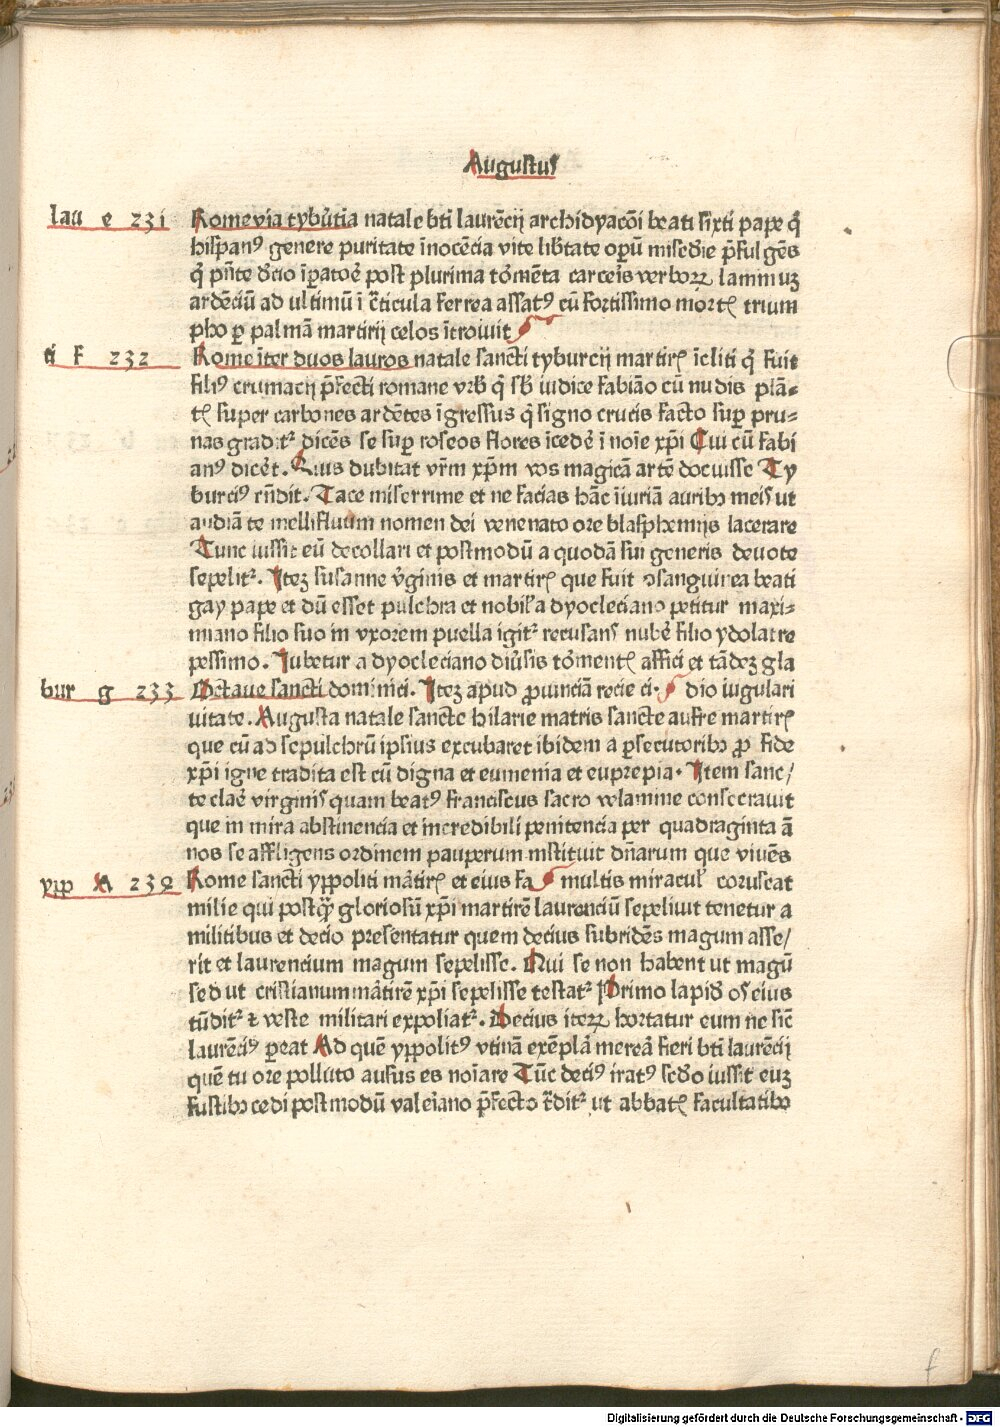 Augustus
lau e 231 Rome via tyburtia natale bti laurēcij archidyacōi beati sixti pape q̄
hispan⁹ genere puritate īnocēcia vite lib̄tate operū misedie p̄fulgēs
q̄ pn̄te decio īpatoē post plurima tormēta carceīs verborꝝ laminuꝫ
ardēciū ad ultimū ī c̄ticula ferrea assat⁹ cū fortissimo mort̄ trium
pho ꝑ palmā martirij celos ītroiuit
ti F 232 Rome īter duos lauros natale sancti tyburcij martir̄ īcliti q̄ fuit
fili⁹ crumacij p̄fecti romane vrb̄ q̄ sb̄ iudice fabiāo cū nudis plā-
t̄ super carbones ardētes īgressus q̄ signo crucis facto suꝑ pru-
nas gradit᷑ dicēs se suꝑ roseos flores īcedē ī noīe xp̄i Cui cū fabi
an⁹ dicēt. Quis dubitat vr̄m xp̄m vos magicā artē docuisse Ty
burci⁹ rn̄dit. Tace miserrime et ne facias hāc īiuriā auribꝫ meis ut
audiā te mellifluum nomen dei venenato ore blasphemijs lacerare
Tunc iussit eū decollari et postmodū a quodā sui generis deuote
sepelit᷑. Iteꝫ susanne v̄ginis et martir̄ que fuit ꝯsanguinea beati
gay pape et dū esset pulchra et nobil̓ a dyocleciano petitur maxi-
miano filio suo in vxorem puella igit᷑ recusans nubē filio ydolatre
pessimo. Iubetur a dyocleciano diūsis tormēt̄ affici et tādeꝫ gla
bur g 233 Octaue sancti dominici. Iteꝫ apud ꝓuinciā recie ci- dio iugulari
uitate. Augusta natale sancte hilarie matris sancte aufre martir̄
que cū ad sepulchrū ipsius excubaret ibidem a ꝑsecutoribꝫ ꝓ fide
xp̄i igne tradita est cū digna et eumenia et euprepia. Item sanc/
te claē virginis quam beat⁹ franciscus sacro velamine consecrauit
que in mira abstinencia et incredibili penitencia per quadraginta ā
nos se affligens ordinem pauperum instituit dn̄arum que viuēs
ypp A 234 Rome sancti yppoliti mātir̄ et eius fa multis miracul̓ coruscat
milie qui postq̄ gloriosū xp̄i martirē laurenciū sepeliuit tenetur a
militibus et decio presentatur quem decius subridēs magum asse/
rit et laurencium magum sepelisse. Qui se non habent ut magū
sed ut cristianum mātirē xp̄i sepelisse testat᷑ Primo lapid̄ os eius
tūdit᷑ ⁊ veste militari expoliat᷑. Decius iterꝝ hortatur eum ne sic̄
laurēci⁹ ꝑeat Ad quē yppolit⁹ vtinā exēplā mereā fieri bti laurēcij
quē tu ore polluto ausus es noīare Tūc deci⁹ irat⁹ scd̄o iussit euꝫ
fustibꝫ cedi postmodū valeiano p̄fecto t̄dit᷑ ut abbat̄ facultatibꝫ
f
Digitalisierung gefördert durch die Deutsche Forschungsgemeinschaft - DFG